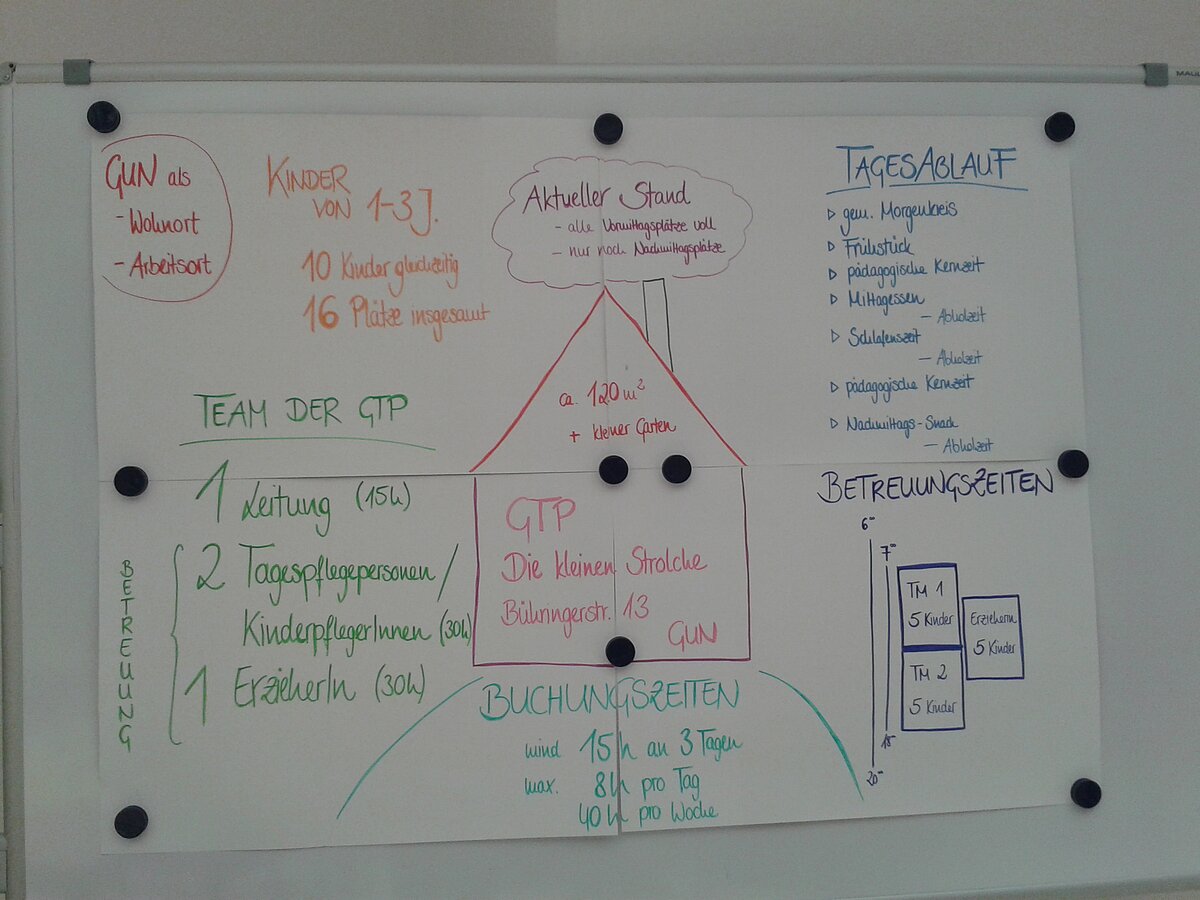 MAUL
GUN als
- Wohnort
- Arbeitsort
KINDER
VON 1-3J.
10 Kinder gleichzeitig
16 Plätze insgesamt
Aktueller Stand
- alle Vormittagsplätze voll
- nur noch Nachmittagsplätze
TAGESABLAUF
▷ gem. Morgenkreis
▷ Frühstück
▷ pädagogische Kernzeit
▷ Mittagessen
- Abholzeit
▷ Schlafenszeit
- Abholzeit
▷ pädagogische Kernzeit
▷ Nachmittags-Snack
- Abholzeit
ca. 120 m²
+ kleiner Garten
TEAM DER GTP
1 Leitung (15h)
BETREUUNG
2 Tagespflegepersonen/
KinderpflegerInnen (30h)
1 ErzieherIn (30h)
GTP
Die kleinen Strolche
Bühringerstr. 13
GUN
BUCHUNGSZEITEN
mind 15h an 3 Tagen
max. 8h pro Tag
40h pro Woche
BETREUUNGSZEITEN
6⁰⁰
7⁰⁰
TM 1
5 Kinder
Erzieherin
5 Kinder
TM 2
5 Kinder
15⁰⁰
20⁰⁰